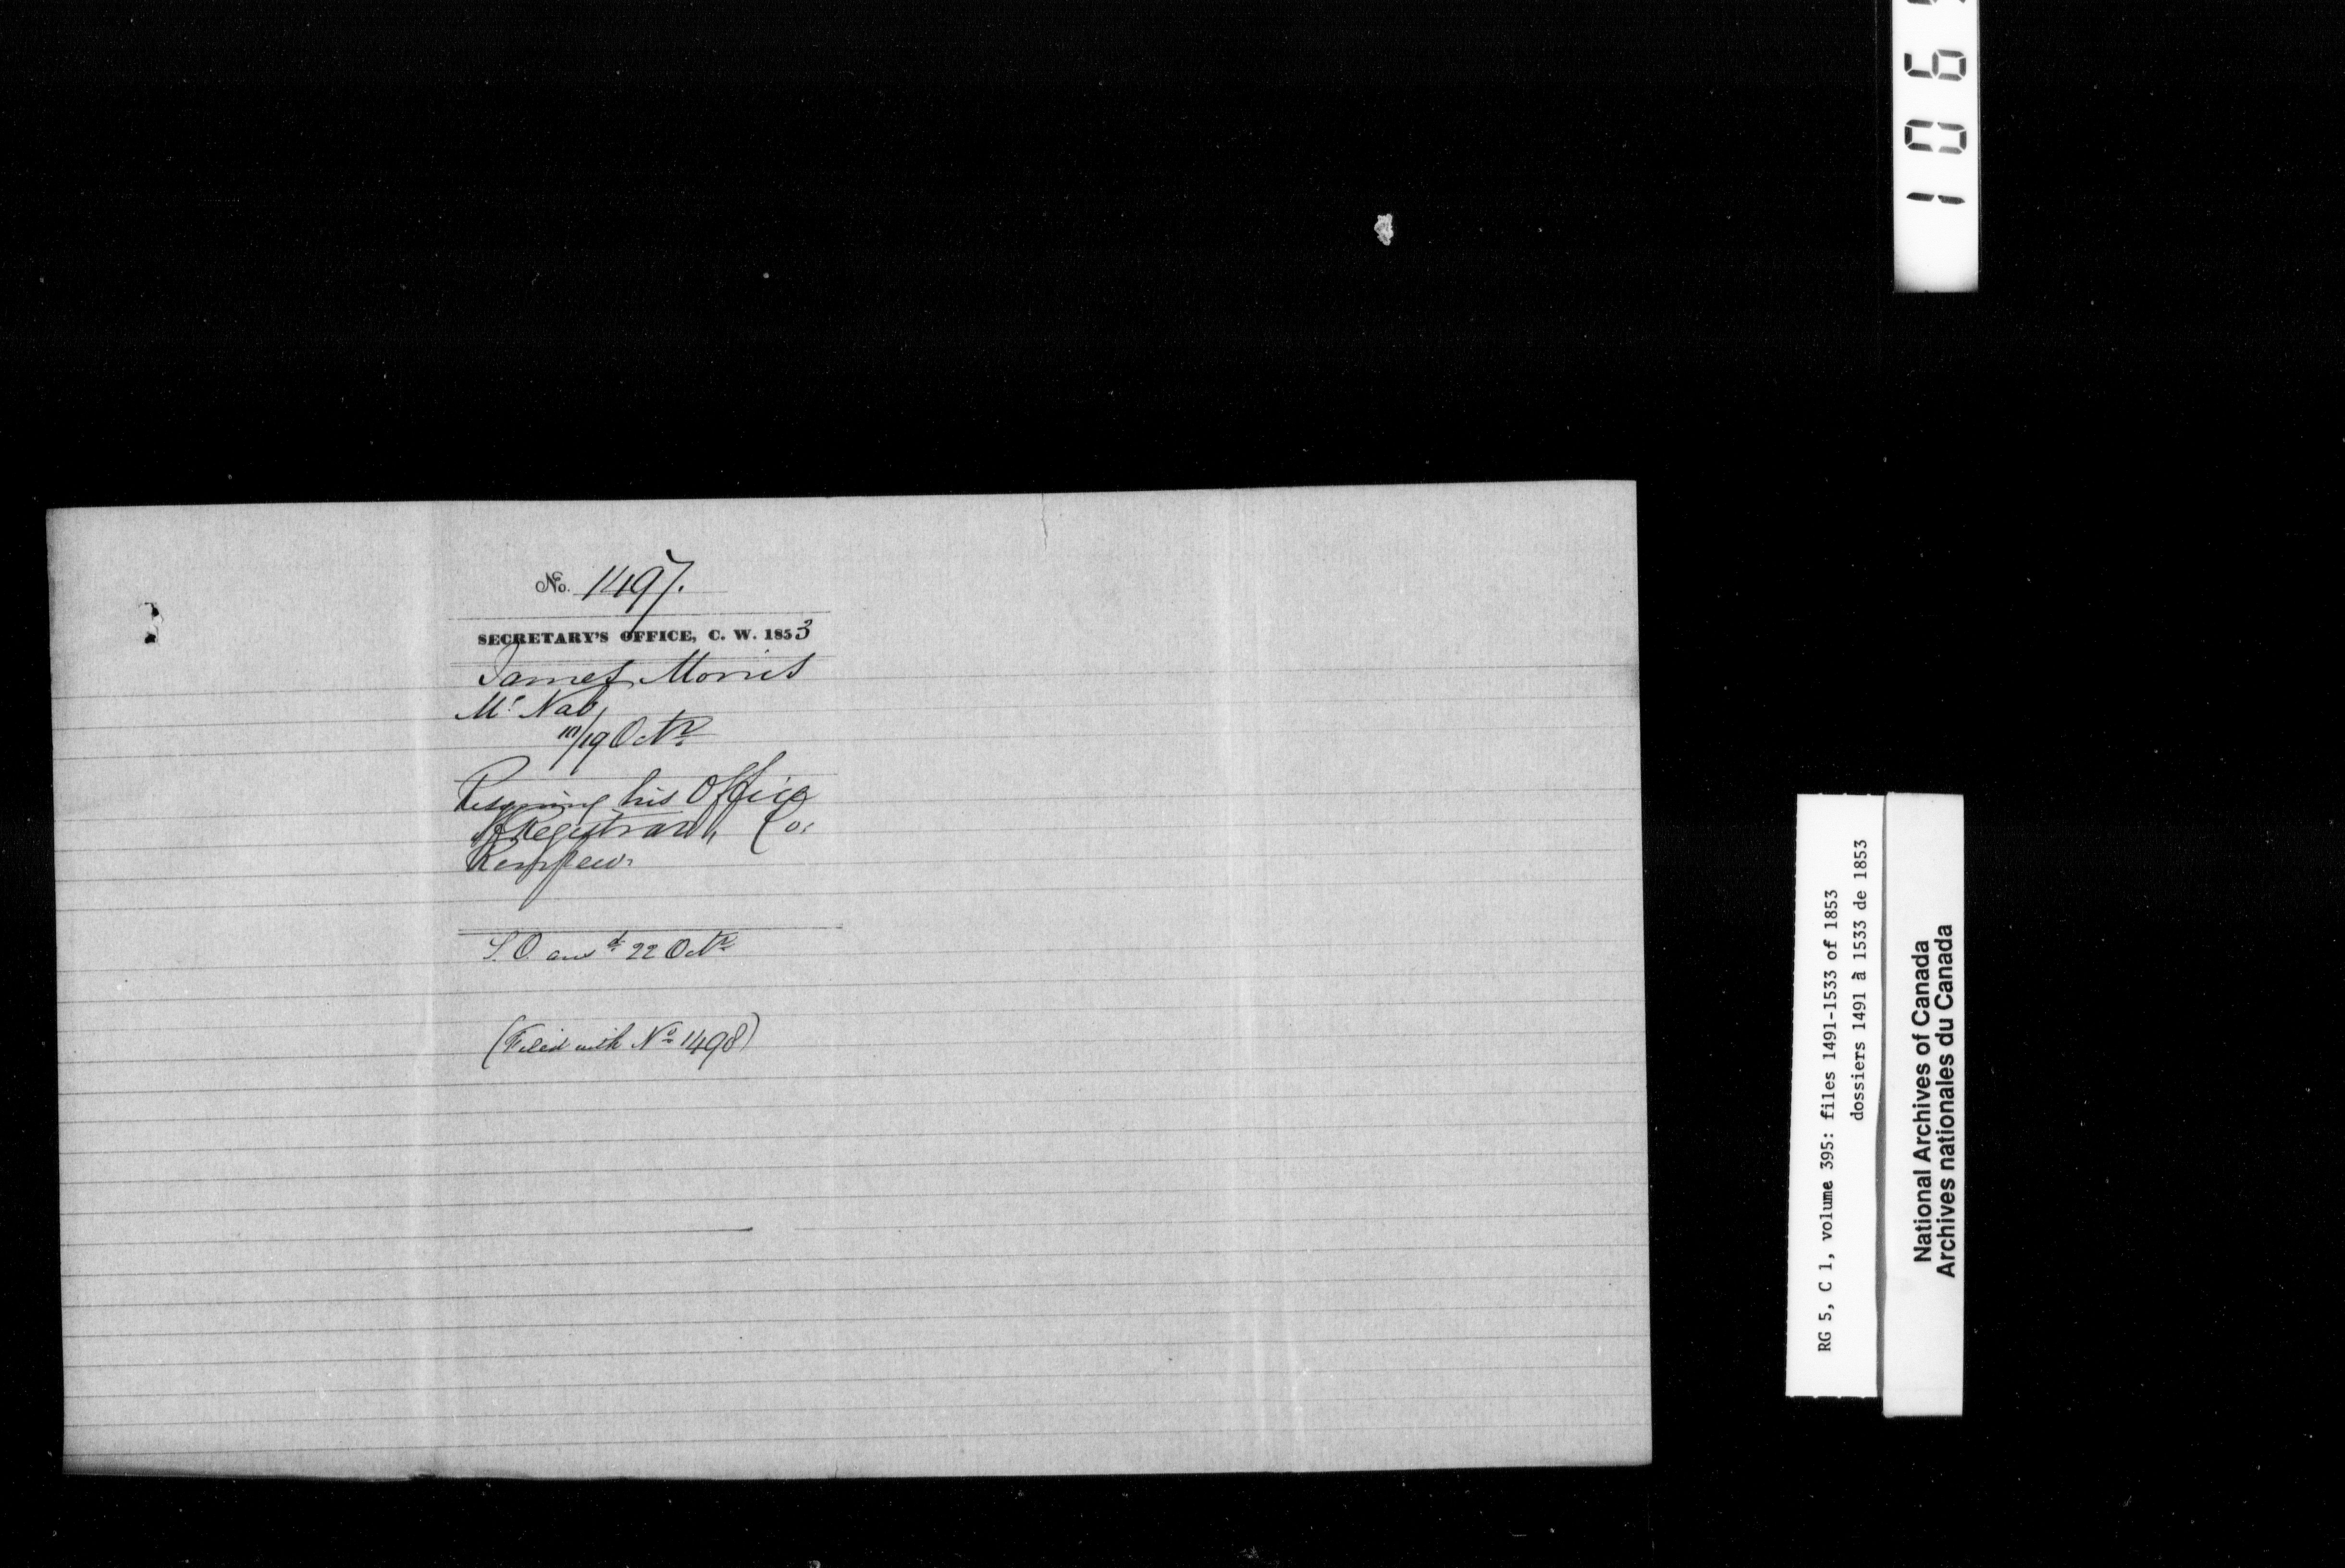 No. 1497.
SECRETARY'S OFFICE, C. W. 1853
James Morris
Mc Nab
10/19 Octr
Resigning his Office
of Registrar, Co:
Renfrew.
S. O. ansd 22 Octr
(Filed with No 1498)
RG 5, C 1, volume 395: files 1491-1533 of 1853
dossiers 1491 à 1533 de 1853
National Archives of Canada
Archives nationales du Canada